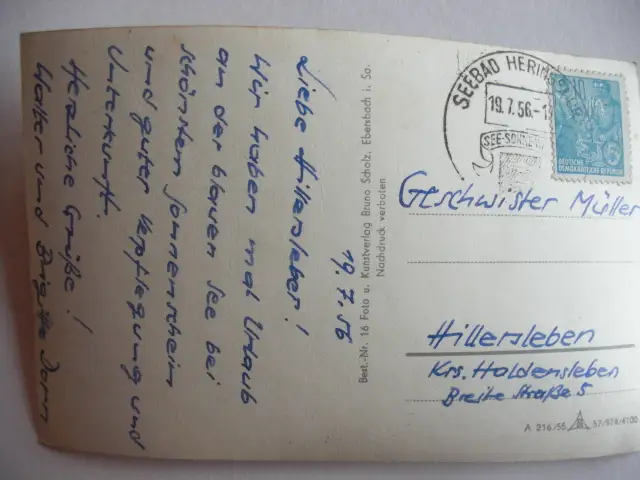 19.7.56
Liebe Hillersleber!
Wir haben mal Urlaub
an der blauen See bei
schönstem Sonnenschein
und guter Verpflegung und
Unterkunft.
Herzliche Grüße!
Walter und Brigitte Dorn
Best.-Nr. 16 Foto u. Kunstverlag Bruno Scholz, Ebersbach i. Sa.
Nachdruck verboten
SEEBAD HERIN
19.7.56.-1
DEUTSCHE
DEMOKRATISCHE REPUBLIK
5
Geschwister Müller
Hillersleben
Krs. Haldensleben
Breite Straße 5
A 216/55 57/674/4100